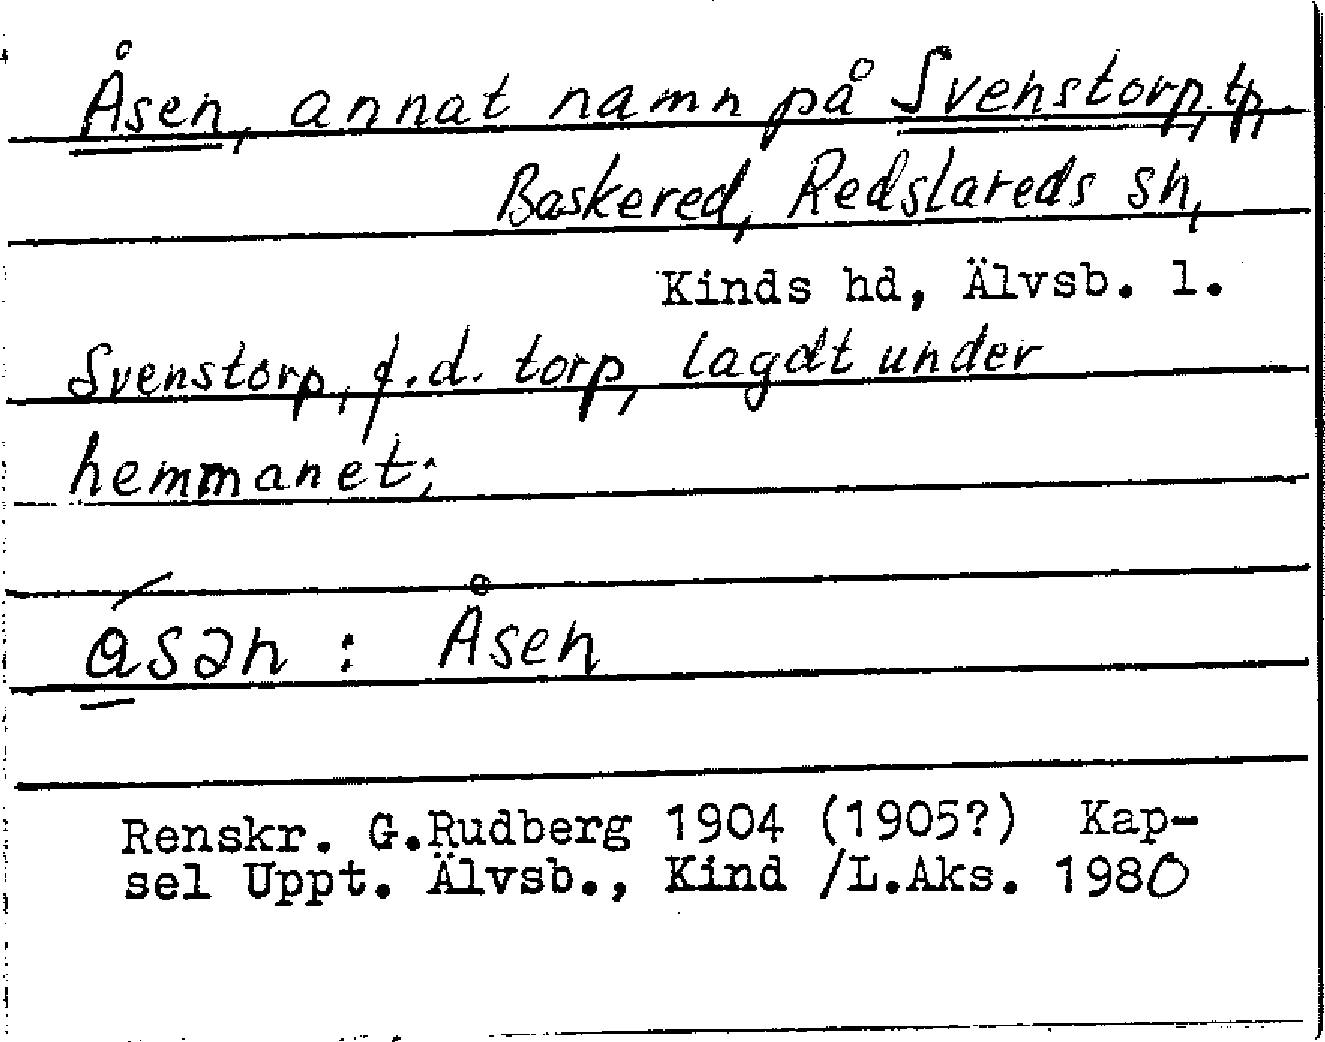 Åsen, annat namn på Svenstorp, tp,
Baskered, Redslareds sn,
Kinds hd, Älvsb. l.
Svenstorp, f.d. torp, lagdt under
hemmanet;
á̲sən : Åsen
Renskr. G.Rudberg 1904 (1905?) Kap-
sel Uppt. Älvsb., Kind /L.Aks. 1980